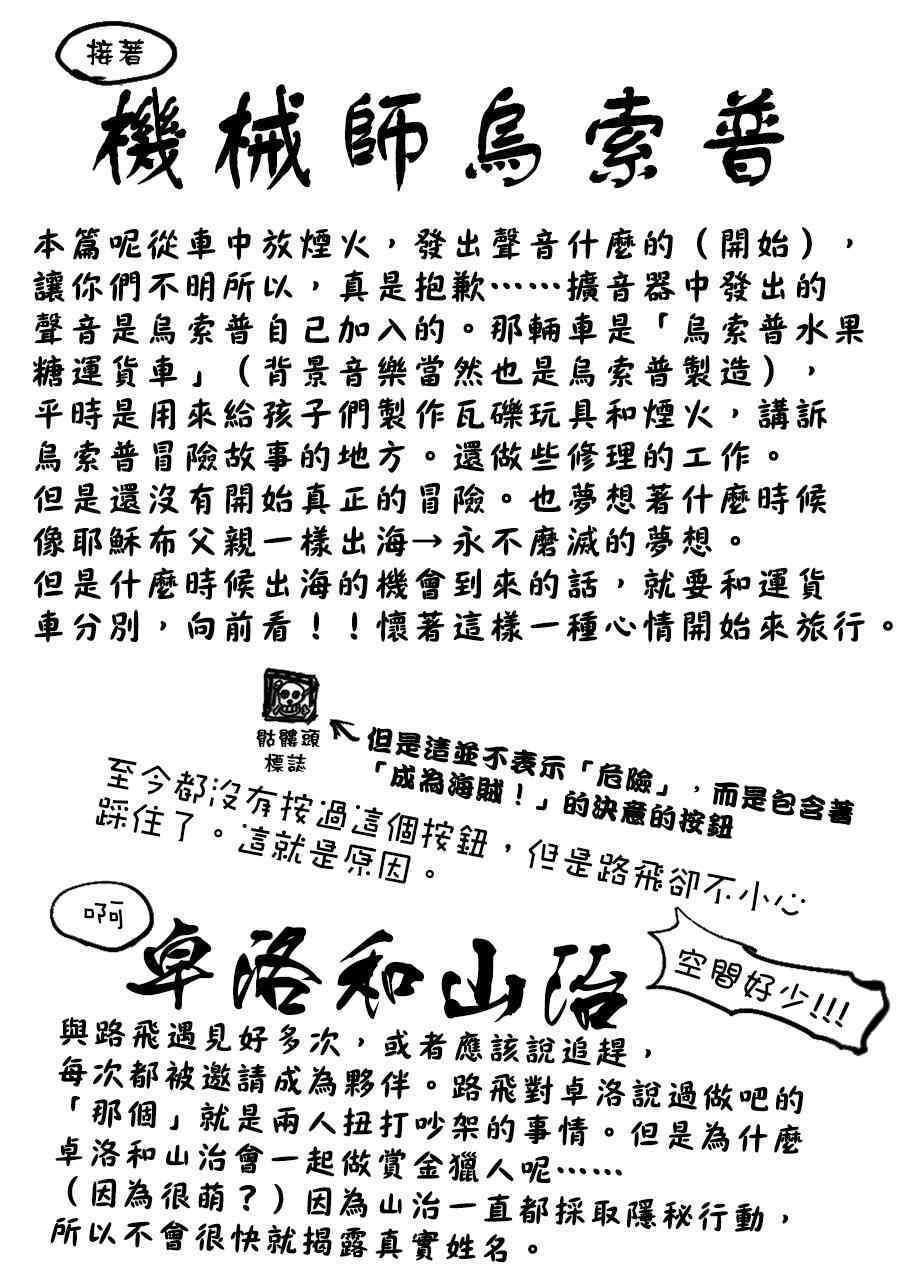 接著
機械師烏索普
本篇呢從車中放煙火，發出聲音什麼的（開始），
讓你們不明所以，真是抱歉……擴音器中發出的
聲音是烏索普自己加入的。那輛車是「烏索普水果
糖運貨車」（背景音樂當然也是烏索普製造），
平時是用來給孩子們製作瓦礫玩具和煙火，講訴
烏索普冒險故事的地方。還做些修理的工作。
但是還沒有開始真正的冒險。也夢想著什麼時候
像耶穌布父親一樣出海→永不磨滅的夢想。
但是什麼時候出海的機會到來的話，就要和運貨
車分別，向前看！！懷著這樣一種心情開始來旅行。
骷髏頭
標誌
←但是這並不表示「危險」，而是包含著
「成為海賊！」的決意的按鈕
至今都沒有按過這個按鈕，但是路飛卻不小心
踩住了。這就是原因。
啊
卓洛和山治
空間好少!!!
與路飛遇見好多次，或者應該說追趕，
每次都被邀請成為夥伴。路飛對卓洛說過做吧的
「那個」就是兩人扭打吵架的事情。但是為什麼
卓洛和山治會一起做賞金獵人呢……
（因為很萌？）因為山治一直都採取隱秘行動，
所以不會很快就揭露真實姓名。